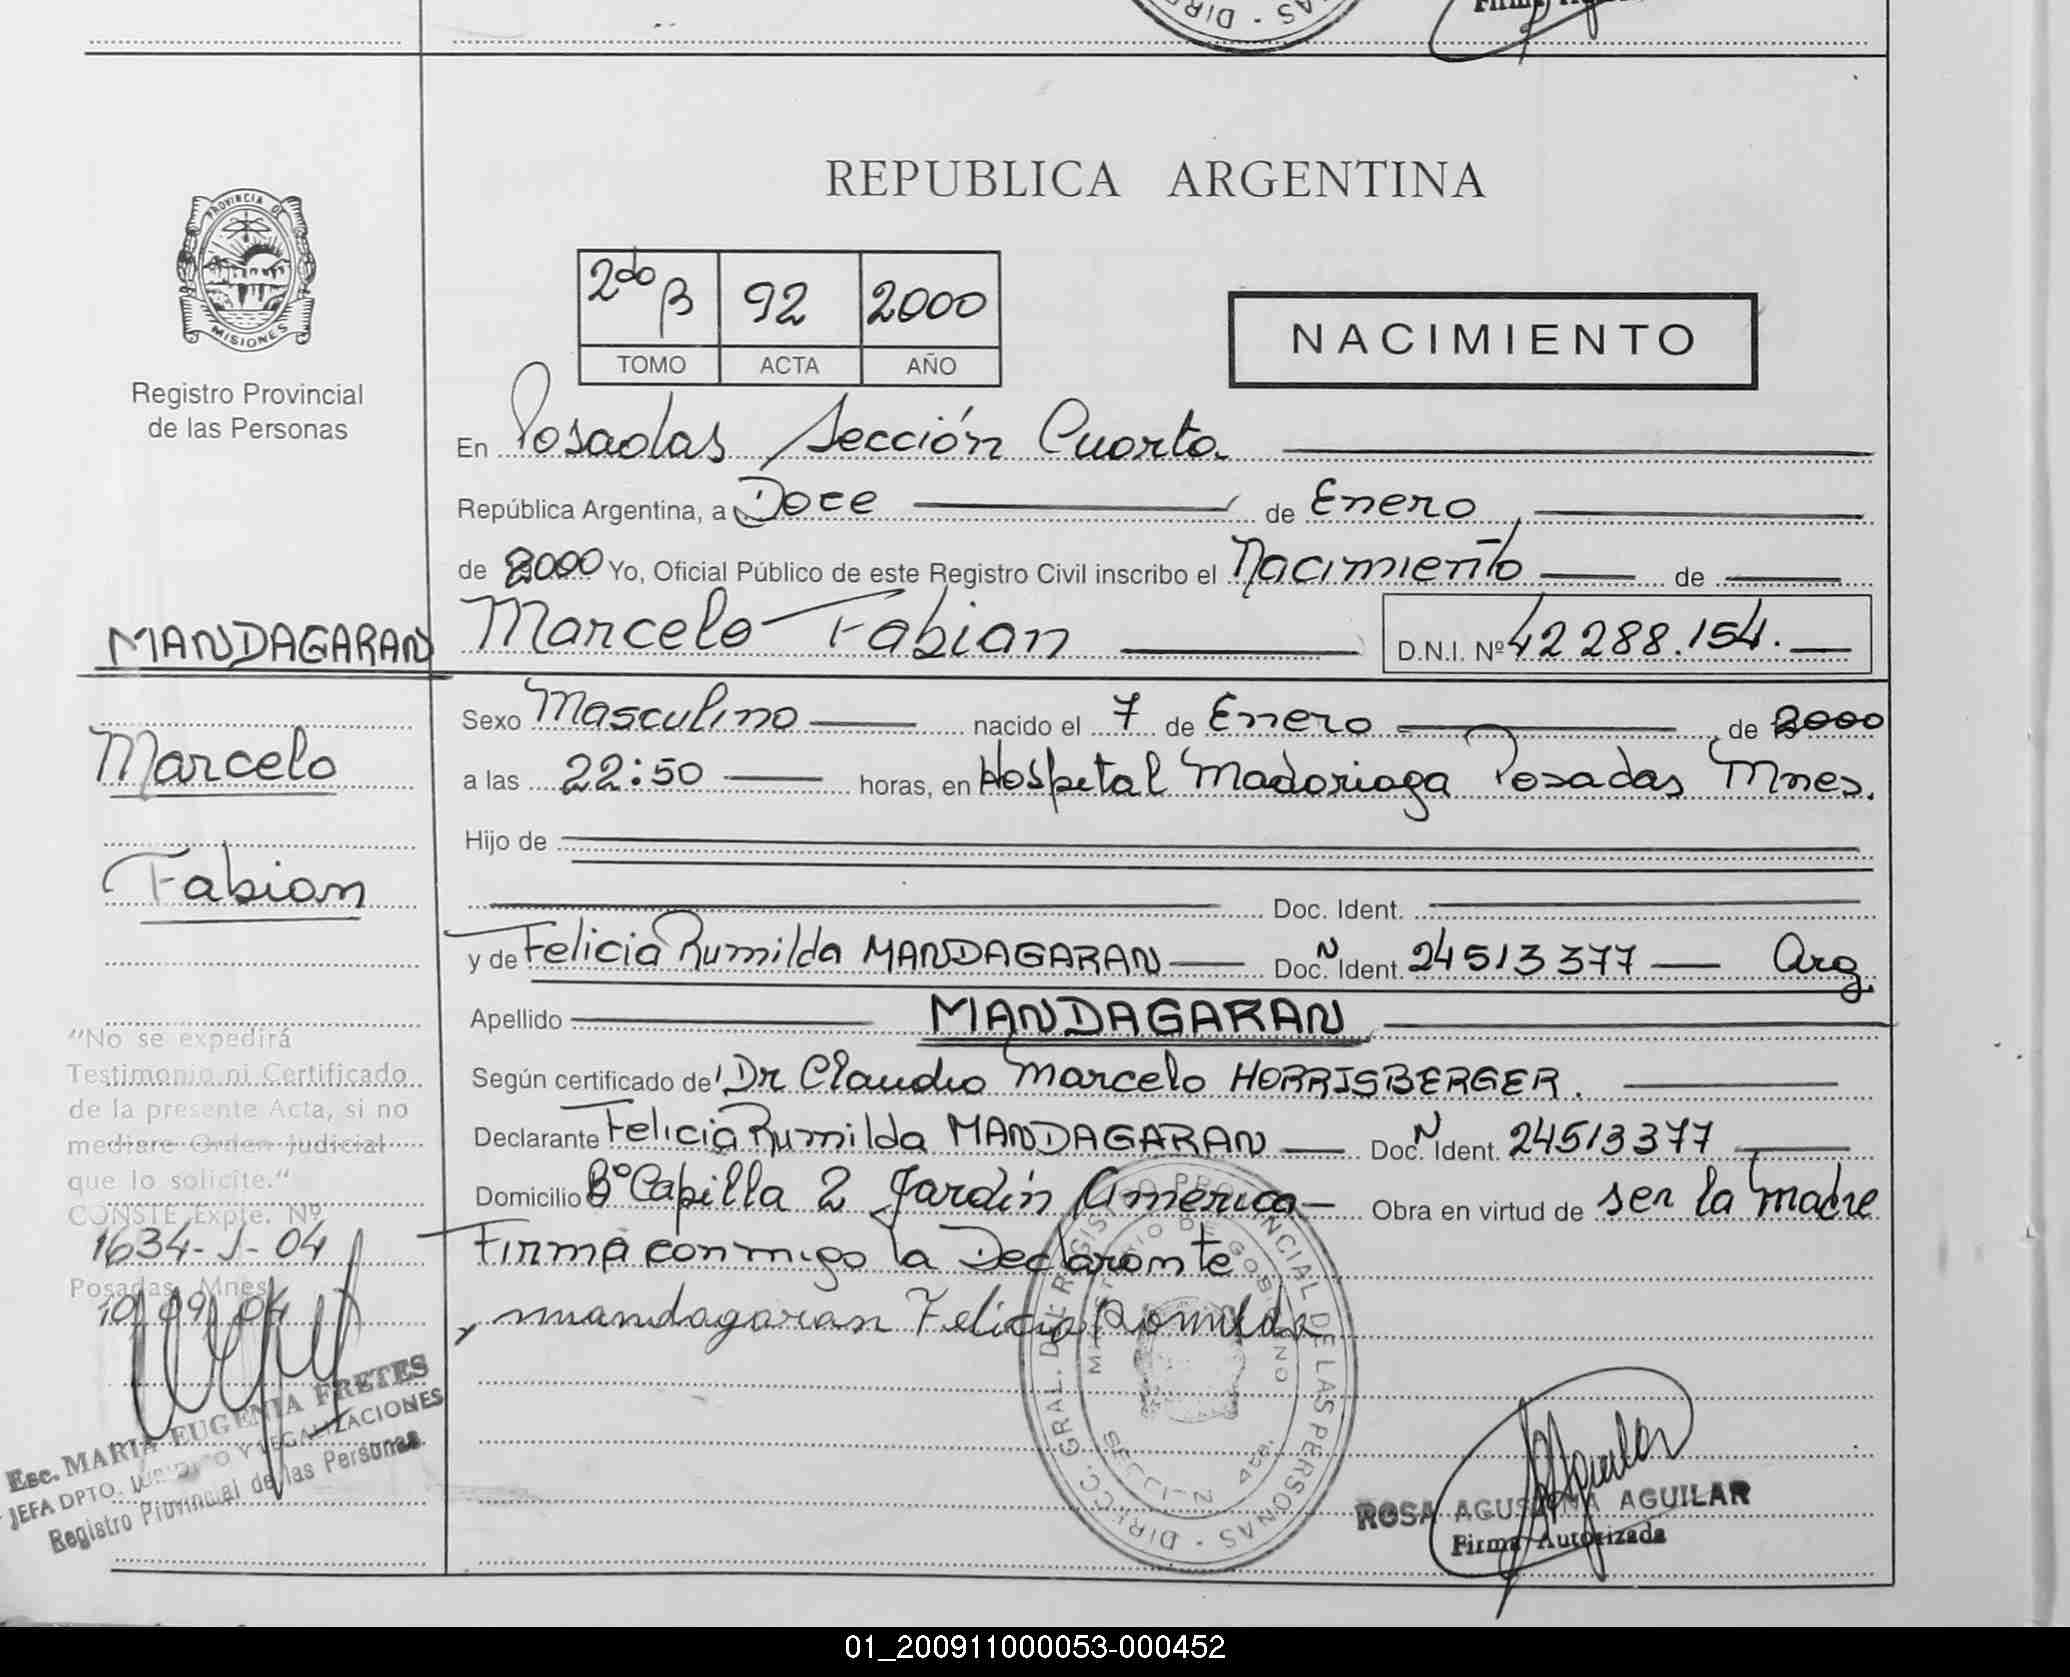 REPUBLICA ARGENTINA
PROVINCIA DE
MISIONES
Registro Provincial
de las Personas
2do B 92 2000
TOMO ACTA AÑO
NACIMIENTO
En Posadas Sección Cuarta
República Argentina, a Doce de Enero
de 2000 Yo, Oficial Público de este Registro Civil inscribo el Nacimiento de
MANDAGARAN
Marcelo Fabian D.N.I. Nº 42 288.154.
Marcelo
Fabian
Sexo Masculino nacido el 7 de Enero de 2000
a las 22:50 horas, en Hospital Madoriaga Posadas Mnes.
Hijo de
Doc. Ident.
y de Felicia Rumilda MANDAGARAN Doc. N Ident. 24513377 Arg.
Apellido MANDAGARAN
Según certificado de Dr Claudio Marcelo HORRISBERGER.
Declarante Felicia Rumilda MANDAGARAN Doc. N Ident. 24513377
Domicilio Bº Capilla 2 Jardín America Obra en virtud de ser la madre
Firma conmigo la Declarante
mandagaran Felicia Romilda
"No se expedirá
Testimonio ni Certificado
de la presente Acta, si no
mediare Orden Judicial
que lo solicite."
CONSTE Expte. Nº
1634-J-04
Posadas, Mnes
10 09 04
Esc. MARIA EUGENIA FRETES
JEFA DPTO. Y LEGALIZACIONES
Registro Provincial de las Personas
DIRECC. GRAL. DEL REGISTRO PROVINCIAL DE LAS PERSONAS
MINISTERIO DE GOBIERNO
SECCION 4ta.
Aguilar
ROSA AGUSTINA AGUILAR
Firma Autorizada
01_200911000053-000452